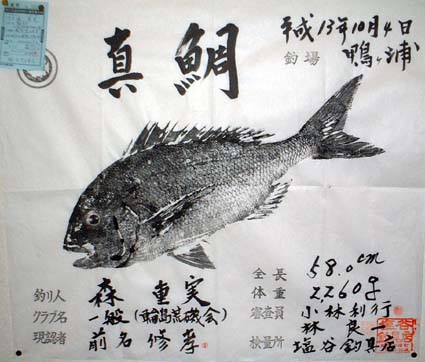 真鯛
平成13年10月4日
釣場
鴨ヶ浦
全長 58.0cm
体重 2,260g
釣り人 森 重実
クラブ名 一般(輪島荒磯会)
現認者 前名 修孝
審査員 小林利行
林 良一
検量所 塩谷釣具店